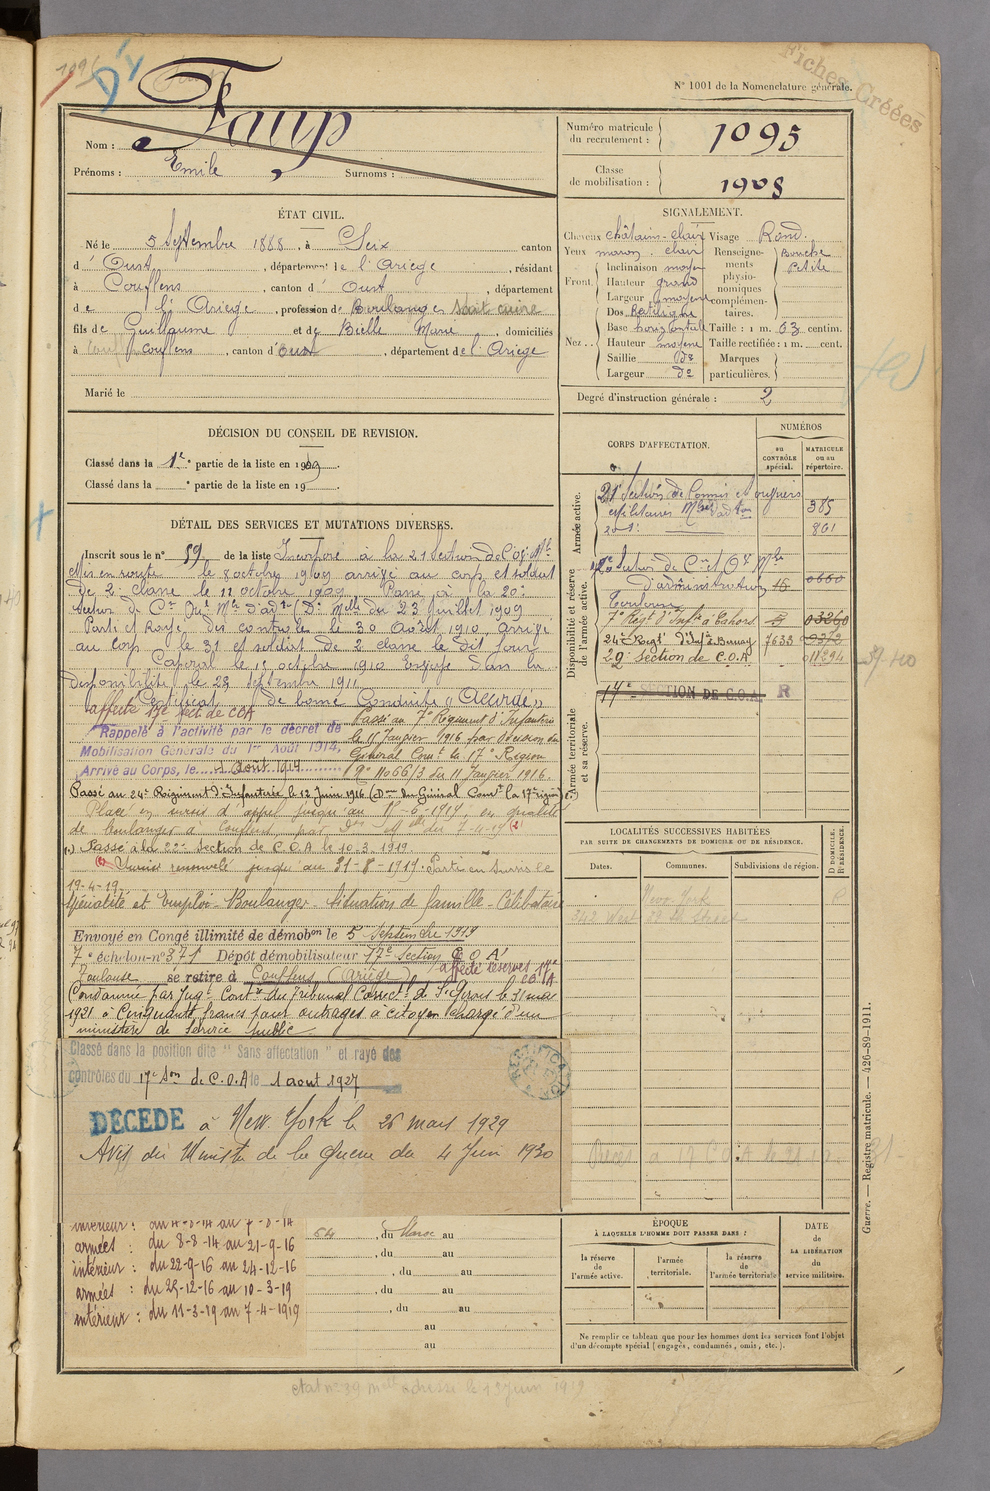 Fiches Créées
N° 1001 de la Nomenclature générale.
1096
Nom : Faup
Prénoms : Emile Surnoms :
Numéro matricule du recrutement : 1095
Classe de mobilisation : 1908
ÉTAT CIVIL.
Né le 5 Septembre 1888, à Seix canton
d'Oust, département de l'Ariège, résidant
à Couflens, canton d'Oust, département
de l'Ariège, profession de Boulanger Sait cuire
fils de Guillaume et de Bielle Marie, domiciliés
à Couflens, canton d'Oust, département de l'Ariège
Marié le
SIGNALEMENT.
Cheveux châtain-clair Visage Rond.
Yeux maron clair
Front. Inclinaison moyen
Hauteur grand
Largeur moyenne
Nez.. Dos Rectiligne
Base horizontale
Hauteur moyenne
Saillie do
Largeur do
Renseignements physionomiques complémentaires. Bouche Petite
Taille : 1 m. 63 centim.
Taille rectifiée : 1 m. cent.
Marques particulières.
Degré d'instruction générale : 2
DÉCISION DU CONSEIL DE REVISION.
Classé dans la 1re partie de la liste en 1909.
Classé dans la e partie de la liste en 19 .
DÉTAIL DES SERVICES ET MUTATIONS DIVERSES.
Inscrit sous le n° 59 de la liste Incorporé à la 21 Section de
Mis en route le 8 octobre 1909 arrivé au corps et soldat
de 2 classe le 11 octobre 1909. Passé à la 20e
Section de Cis Ouv Mres d'adon (Dn Melle du 23 juillet 1909
Parti et Rayé des controles le 30 Août 1910, arrivé
au corp le 31 et soldat de 2 classe le dit jour
Caporal le 1er octobre 1910 Envoyé dans la
disponibilité le 28 septembre 1911
Certificat de bonne Conduite "Accordé"
affecté 17e sect de COA
Rappelé à l'activité par le décret de
Mobilisation Générale du 1er Août 1914,
Arrivé au Corps, le 4 août 1914
Passé au 7e Régiment d'Infanterie
le 11 Janvier 1916 par décision du
Général Comt la 17e Région
No 11066/3 du 11 Janvier 1916.
Passé au 24e Régiment d'Infanterie le 12 Juin 1916 (Don du Général Comt la 17e région)
Placé en sursis d'appel jusqu'au 15-6-1919, en qualité
de boulanger à Couflens, par Don Mlle du 7-4-19 (2)
(1) Passé à la 22e Section de C.O.A le 10-3-1919
(2) Sursis renouvelé jusqu'au 31-8-1919. Parti en sursis le
19-4-19.
Spécialité et Emploi - Boulanger - Situation de famille - Célibataire
Envoyé en Congé illimité de démobon le 5 Septembre 1919
7e échelon-n° 371 Dépôt démobilisateur 17e Section C O A
Toulouse se retire à Couflens (Ariège) affecté réserves 17e COA
Condamné par Jugt Contre du Tribunal Correctel de St Girons le 31 mai
1921 à Cinquante francs pour outrages à citoyen chargé d'un
ministère de service public
Classé dans la position dite " Sans-affectation " et rayé des
contrôles du 17e Son de C.O.A le 1 aout 1927
DÉCÉDÉ à New-York le 26 mars 1929
Avis du Ministre de la Guerre du 4 Juin 1930
intérieur : du 4-8-14 au 7-8-14
armées : du 8-8-14 au 21-9-16
intérieur : du 22-9-16 au 24-12-16
armées : du 25-12-16 au 10-3-19
intérieur : du 11-3-19 au 7-4-1919
, du Maroc au
, du au
, du au
, du au
, du au
au
au
CORPS D'AFFECTATION.
NUMÉROS
au CONTRÔLE spécial.
MATRICULE ou au répertoire.
Armée active.
21e Section de Commis et ouvriers
militaires d'adon 385
20e : 801
Disponibilité et réserve de l'armée active.
17e Section de Cis et Ors Mres
d'administration 15 0660
Toulouse
7e Régt d'Inft à Cahors 03360
24e Regt d'Inf. Bernay 7633 0372
22e Section de C.O.A 011294
Armée territoriale et sa réserve.
17e SECTION DE C.O.A. R
LOCALITÉS SUCCESSIVES HABITÉES
PAR SUITE DE CHANGEMENTS DE DOMICILE OU DE RÉSIDENCE.
Dates. Communes. Subdivisions de région. D DOMICILE. R RÉSIDENCE.
New-York R
342 West 28 Street
ÉPOQUE
À LAQUELLE L'HOMME DOIT PASSER DANS :
la réserve de l'armée active.
l'armée territoriale.
la réserve de l'armée territoriale
DATE de LA LIBÉRATION du service militaire.
Ne remplir ce tableau que pour les hommes dont les services font l'objet
d'un décompte spécial (engagés, condamnés, omis, etc.).
Guerre. — Registre matricule. — 426-89-1911.